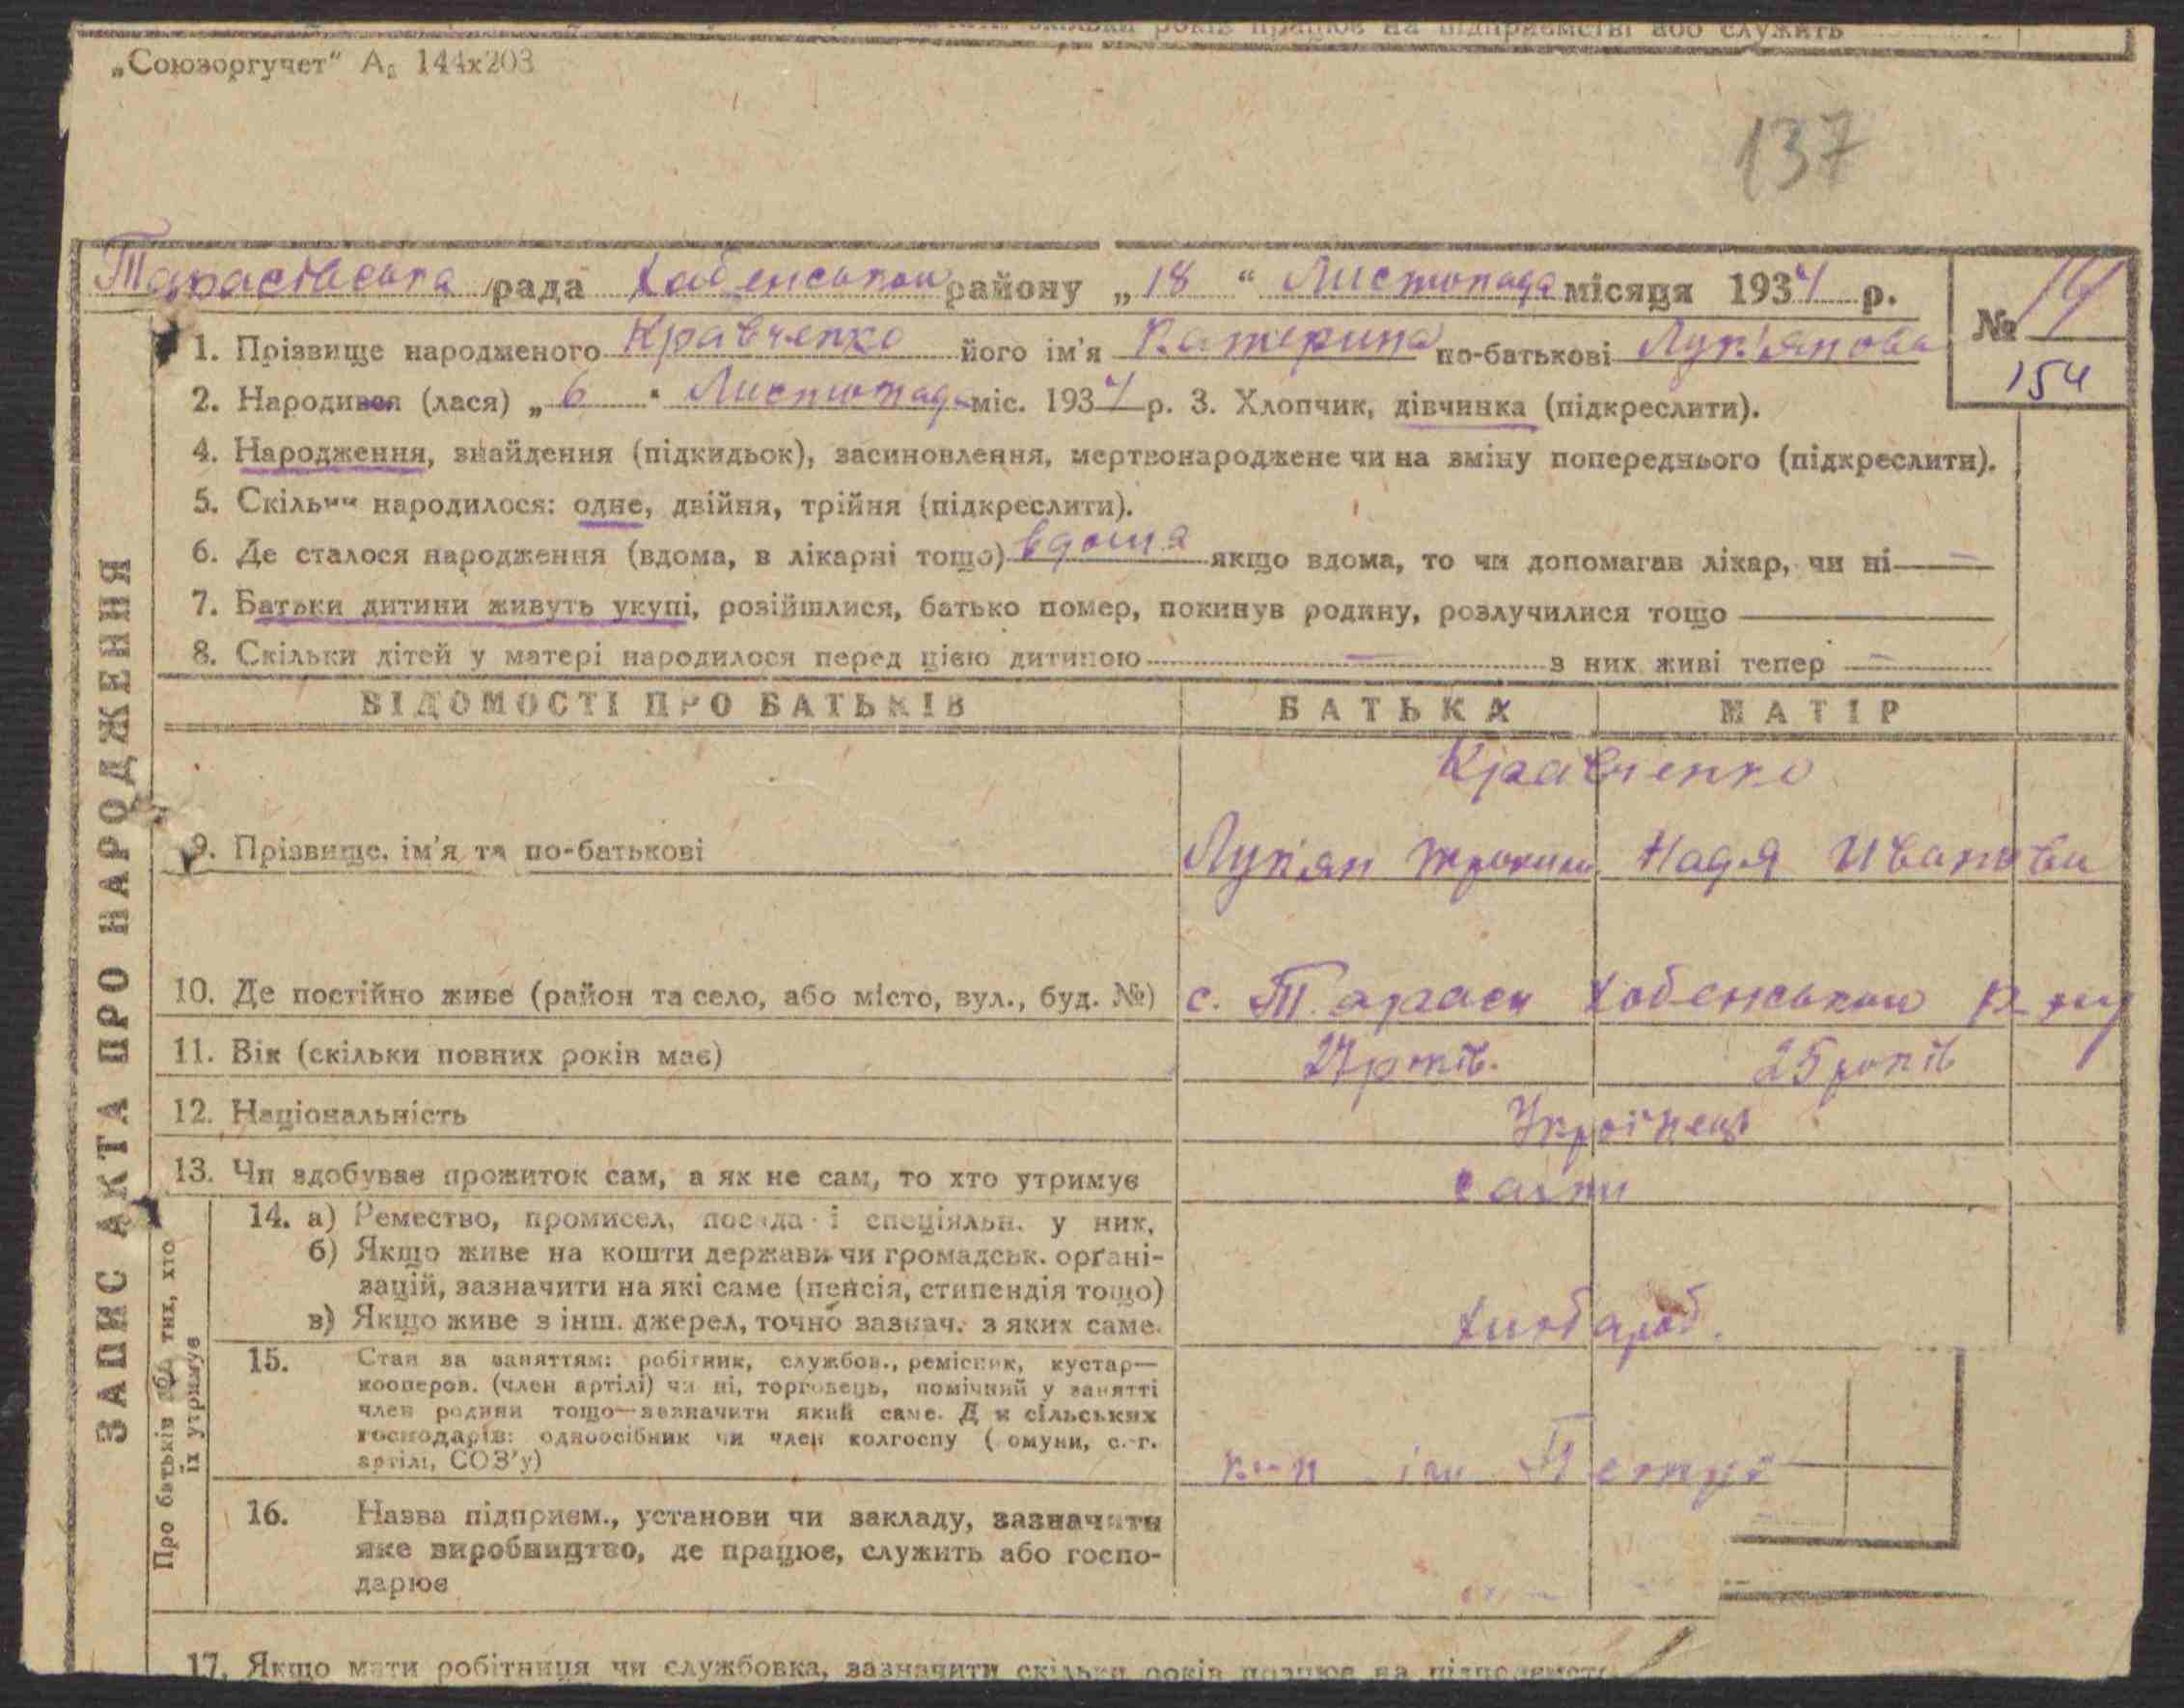 скільки років працює на підприємстві або служить
„Союзоргучет" А 144х203
137
Тарасівська рада Хабенського району „18" Листопада місяця 1934 р.
№
154
1. Прізвище народженого Кравченко його ім'я Катерина по-батькові Лук'янова
2. Народився (лася) „6" Листопада міс. 1934 р. 3. Хлопчик, дівчинка (підкреслити).
4. Народження, знайдення (підкидьок), засиновлення, мертвонароджене чи на зміну попереднього (підкреслити).
5. Скільки народилося: одне, двійня, трійня (підкреслити).
6. Де сталося народження (вдома, в лікарні тощо) вдома якщо вдома, то чи допомагав лікар, чи ні —
7. Батьки дитини живуть укупі, розійшлися, батько помер, покинув родину, розлучилися тощо
8. Скільки дітей у матері народилося перед цією дитиною — з них живі тепер —
ВІДОМОСТІ ПРО БАТЬКІВ БАТЬКА МАТІР
Кравченко
9. Прізвище, ім'я та по-батькові Лук'ян Надя Иванова
10. Де постійно живе (район та село, або місто, вул., буд. №) с. Тараси Хабенського р-ну
11. Вік (скільки повних років має) 27 років. 25 років
12. Національність Українець
13. Чи здобуває прожиток сам, а як не сам, то хто утримує сами
14. а) Ремество, промисел, посада і спеціяльн. у них,
б) Якщо живе на кошти держави чи громадськ. орґані-
зацій, зазначити на які саме (пенсія, стипендія тощо)
в) Якщо живе з інш. джерел, точно зазнач. з яких саме. хлібароб.
15. Стан за заняттям: робітник, службов., ремісник, кустар—
кооперов. (член артілі) чи ні, торговець, помічний у занятті
член родини тощо—зазначити який саме. Д я сільських
господарів: одноосібник чи член колгоспу ( омуни, с.-г.
артілі, СОЗ'у) ім Петро
16. Назва підприєм., установи чи закладу, зазначити
яке виробництво, де працює, служить або госпо-
дарює
17. Якщо мати робітниця чи службовка, зазначити скільки років працює на
ЗАПИС АКТА ПРО НАРОДЖЕННЯ
Про батьків або тих, хто
їх утримує